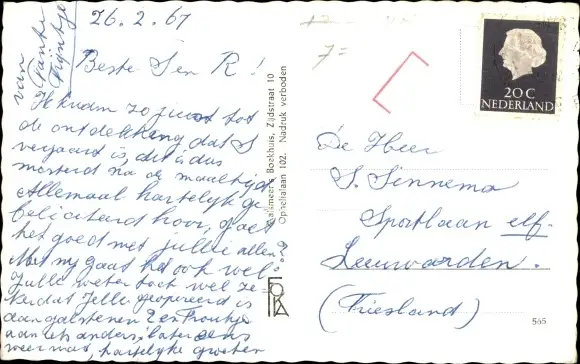 26.2.67
van
Tante
Trijntje
Beste S en R!
Ik kwam zo juist tot
de ontdekking dat S
verjaard is, dit is dus
mosterd na de maaltijd
Allemaal hartelijk ge
feliciteerd hoor, gaat
het goed met jullie allen?
Met mij gaat het ook wel.
Jullie weten toch wel ze-
ker dat Jelle geopereerd is
aan galstenen
aan iets anders, later eens
weer wat, hartelijke groeten
Aalsmeer's Boekhuis, Zijdstraat 10
Ophelialaan 102. Nadruk verboden
FOKA
7=
20 C
NEDERLAND
De Heer
S. Sinnema
Sportlaan elf-
Leeuwarden.
(Friesland)
565